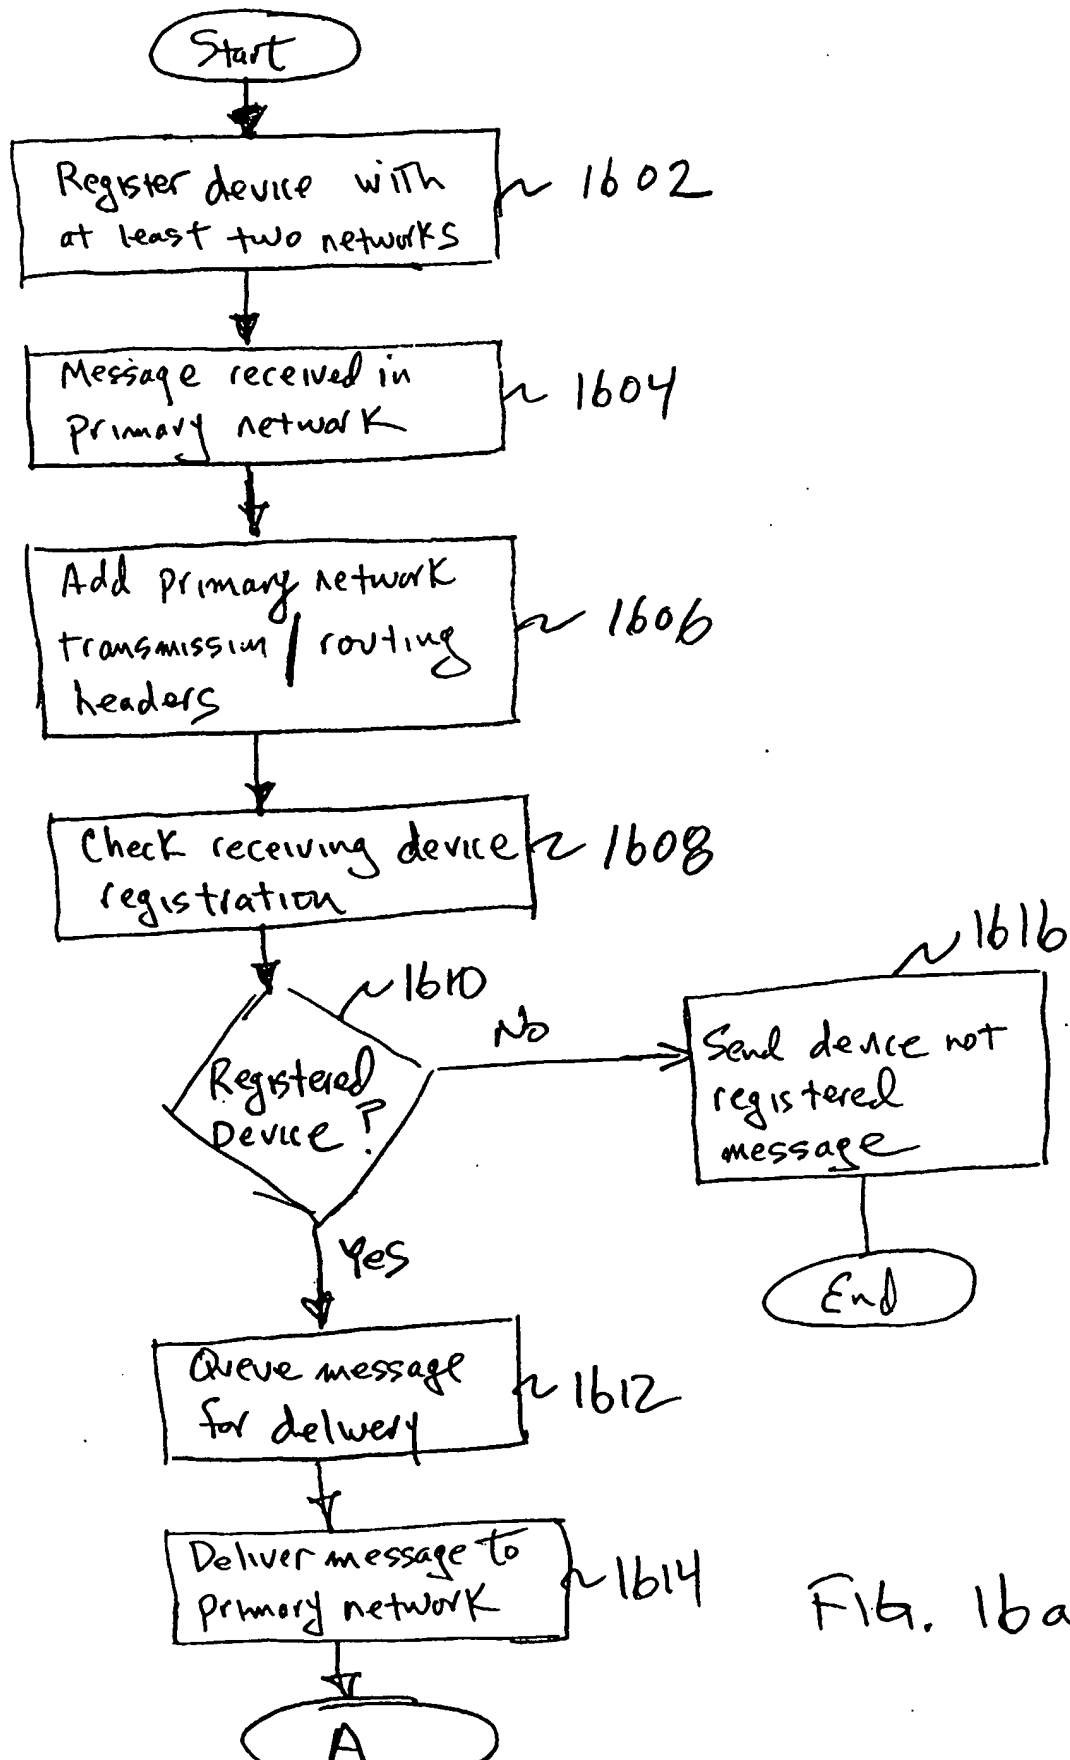 Start
Register device with
at least two networks
1602
Message received in
primary network
1604
Add primary network
transmission / routing
headers
1606
Check receiving device
registration
1608
1610
Registered
Device?
No
1616
Send device not
registered
message
End
Yes
Queue message
for delivery
1612
Deliver message to
primary network
1614
FIG. 16a
A